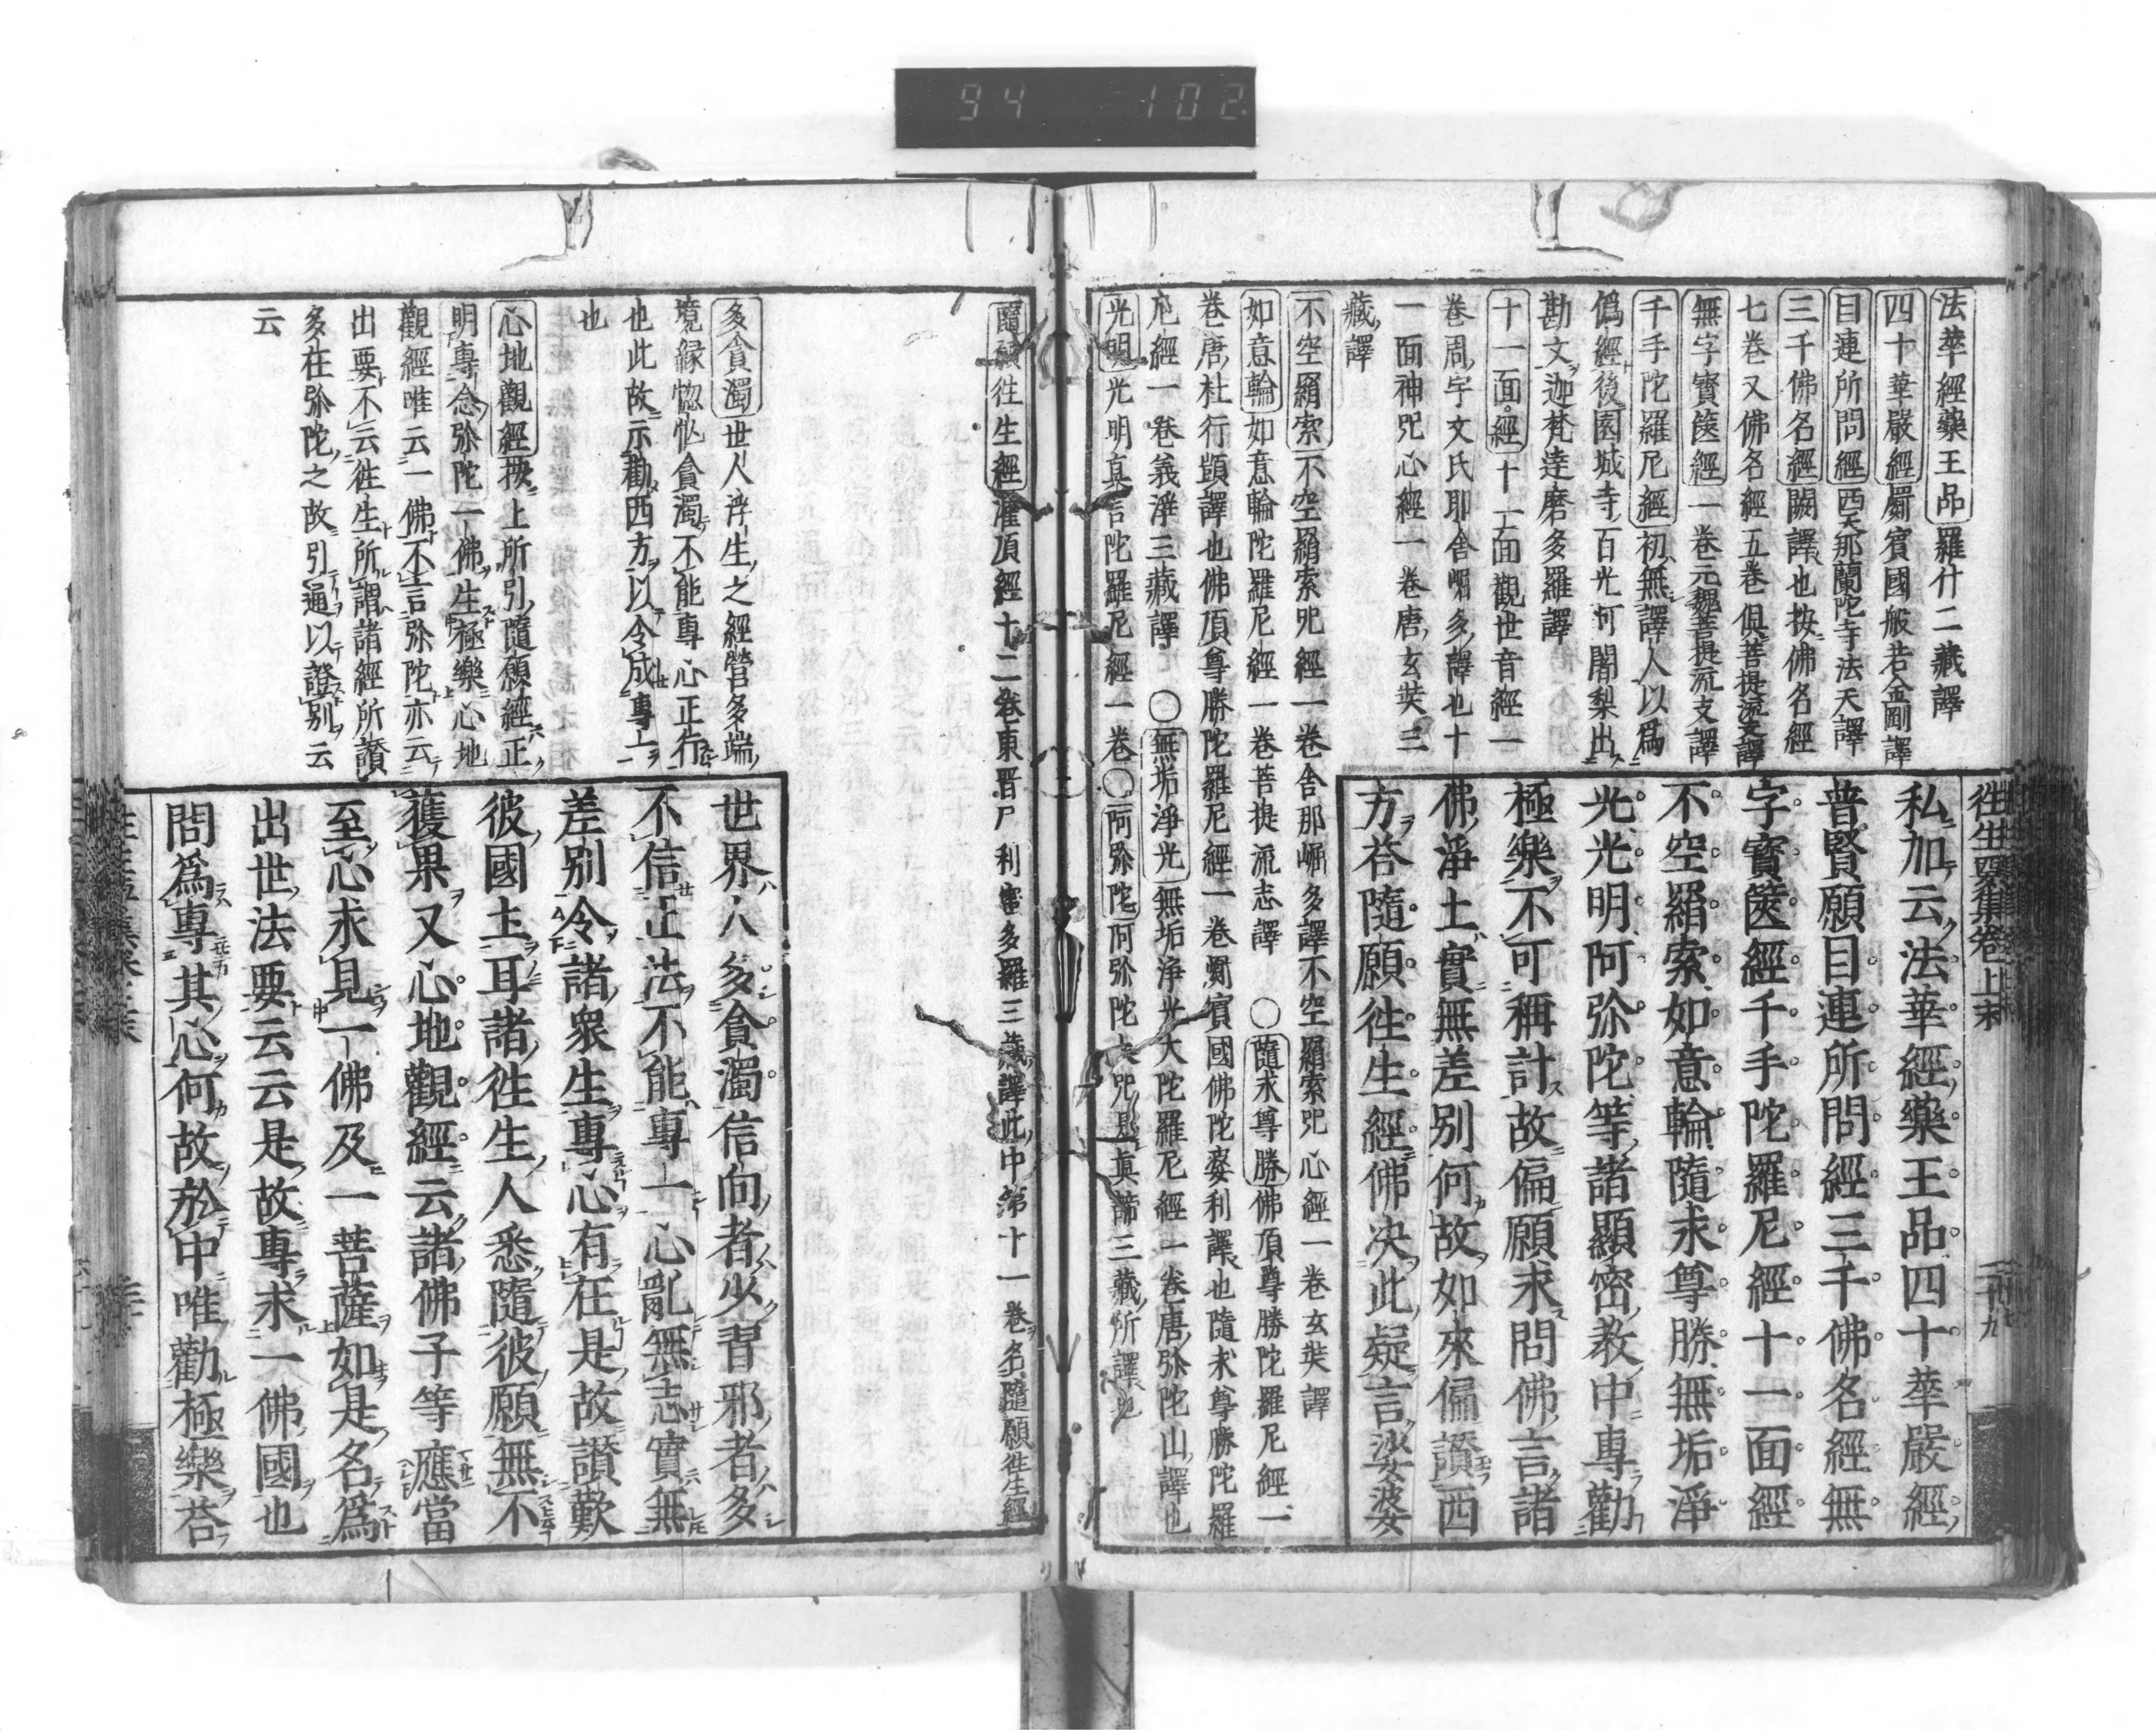 94 102
往生要集卷上末
法華經藥王品羅什二藏譯
四十華嚴經罽賓國般若金剛譯
目連所問經西天那蘭陀寺法天譯
三千佛名經闕譯也按佛名經
七卷又佛名經五卷俱菩提流支譯
無字寶篋經一卷元魏菩提流支譯
千手陀羅尼經初無譯人以爲
僞經後園城寺百光阿闍梨出
勘文迦梵達磨多羅譯
十一面經十一面觀世音經一
卷周宇文氏耶舍崛多譯也十
一面神咒心經一卷唐玄奘三
藏譯
不空羂索不空羂索咒經一卷舍那崛多譯不空羂索咒心經一卷玄奘譯
如意輪如意輪陀羅尼經一卷菩提流志譯 〇隨求尊勝佛頂尊勝陀羅尼經一
卷唐杜行顗譯也佛頂尊勝陀羅尼經一卷罽賓國佛陀婆利譯也隨求尊勝陀羅
尼經一卷義淨三藏譯 〇無垢淨光無垢淨光大陀羅尼經一卷唐弥陀山譯也
光明光明真言陀羅尼經一卷〇阿弥陀阿弥陀大咒是眞諦三藏所譯也
私加云法華經藥王品四十華嚴經
普賢願目連所問經三千佛名經無
字寶篋經千手陀羅尼經十一面經
不空羂索如意輪隨求尊勝無垢淨
光光明阿弥陀等諸顯密教中專勸
極樂不可稱計故偏願求問佛言諸
佛淨土實無差別何故如來偏讃西
方荅隨願往生經佛决此疑言娑婆
隨願往生經灌頂經十二卷東晋尸利蜜多羅三藏譯此中第十一卷名隨願往生經
多貪濁世人浮生之經營多端
境縁惚忙貪濁不能專心正行
也此故示勸西方以令成專一
也
心地觀經按上所引隨願經正
明專念弥陀一佛生極樂心地
觀經唯云一佛不言弥陀亦云
出要不云往生所謂諸經所讃
多在弥陀之故引通以證別云
云
世界人多貪濁信向者少習邪者多
不信正法不能專一心亂無志實無
差別令諸衆生專心有在是故讃歎
彼國土耳諸往生人悉隨彼願無不
獲果又心地觀經云諸佛子等應當
至心求見一佛及一菩薩如是名爲
出世法要云云是故專求一佛國也
問爲專其心何故於中唯勸極樂荅